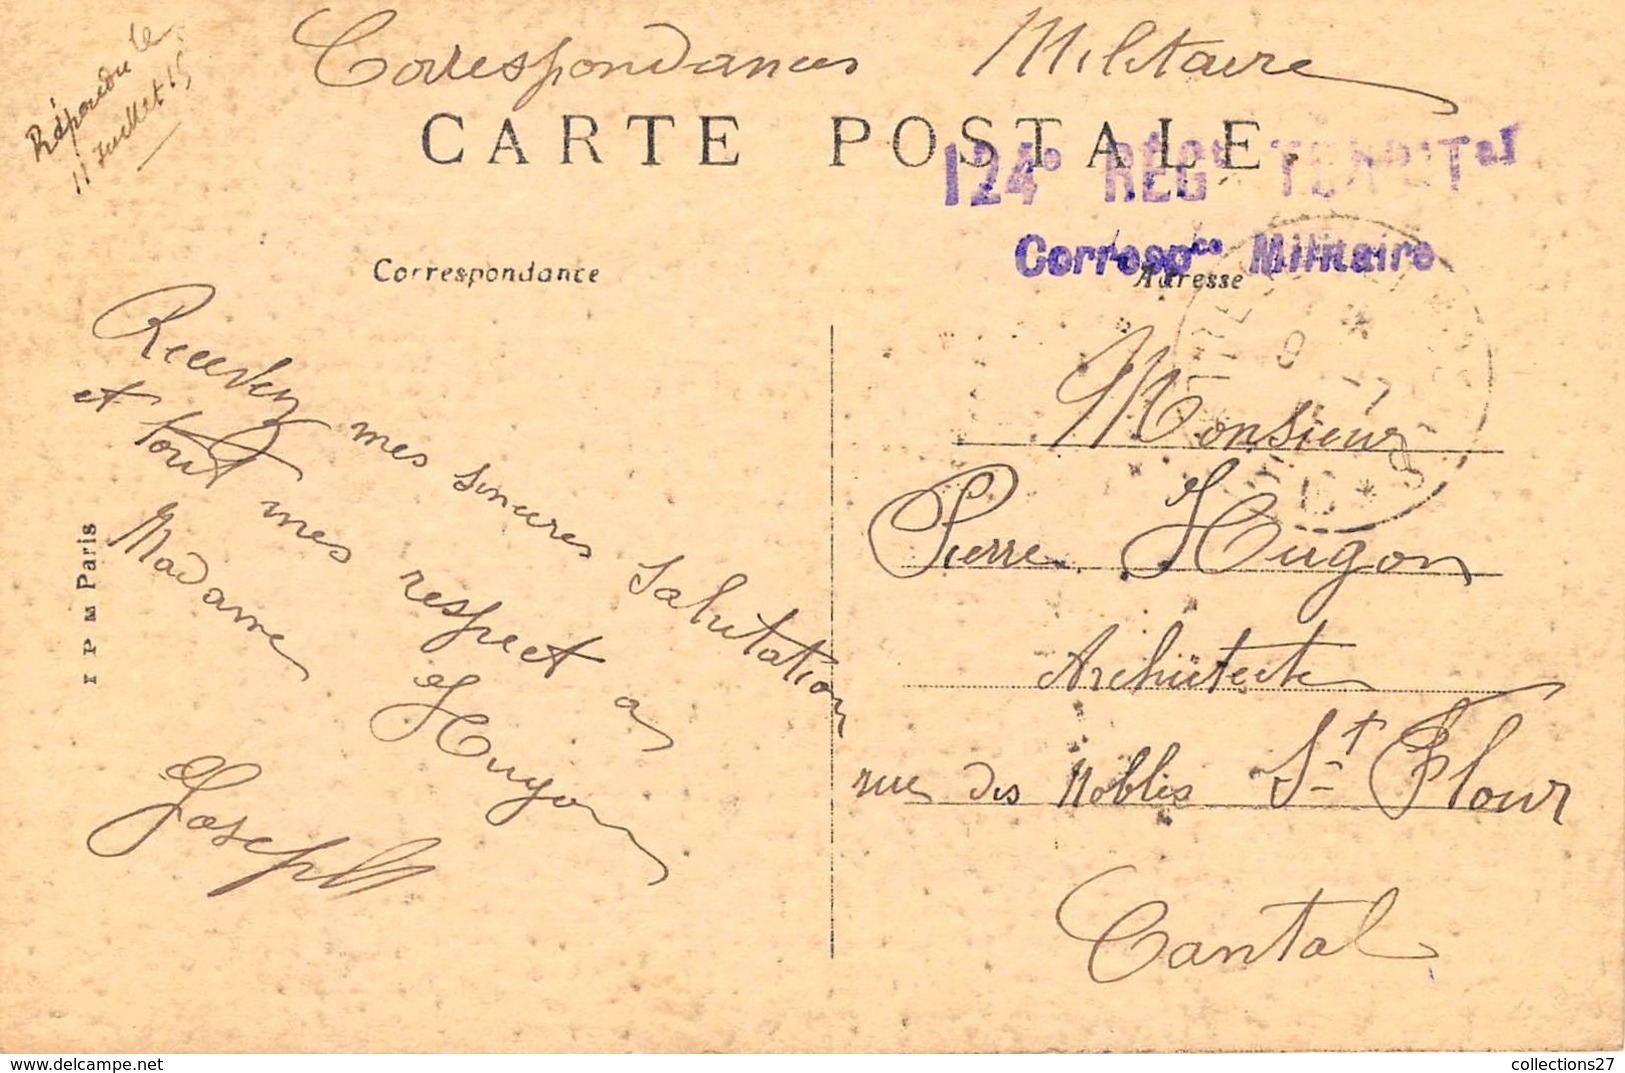 Répondu le
11 Juillet 15
Correspondances Militaire
CARTE POSTALE
124e RÉGt TERRITal
Correspce Militaire
Correspondance
Adresse
Recevez mes sinceres salutation
et tout mes respect a
Madame Hugon
Joseph
I P M Paris
Monsieur
Pierre Hugon
Architecte
rue des Nobles St Flour
Cantal
collections27